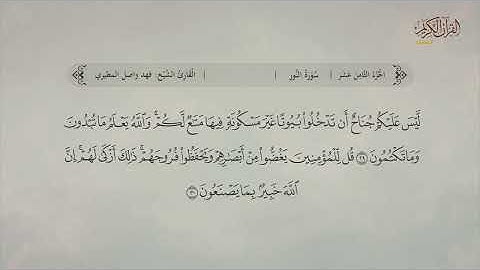 القرآن الكريم
الجزء الثامن عشر | سورة النور | القارئ الشيخ: فهد واصل المطيري
لَّيْسَ عَلَيْكُمْ جُنَاحٌ أَن تَدْخُلُوا۟ بُيُوتًا غَيْرَ مَسْكُونَةٍ فِيهَا مَتَـٰعٌ لَّكُمْ ۚ وَٱللَّهُ يَعْلَمُ مَا تُبْدُونَ
وَمَا تَكْتُمُونَ ٢٩ قُل لِّلْمُؤْمِنِينَ يَغُضُّوا۟ مِنْ أَبْصَـٰرِهِمْ وَيَحْفَظُوا۟ فُرُوجَهُمْ ۚ ذَٰلِكَ أَزْكَىٰ لَهُمْ ۗ إِنَّ
ٱللَّهَ خَبِيرٌۢ بِمَا يَصْنَعُونَ ٣٠